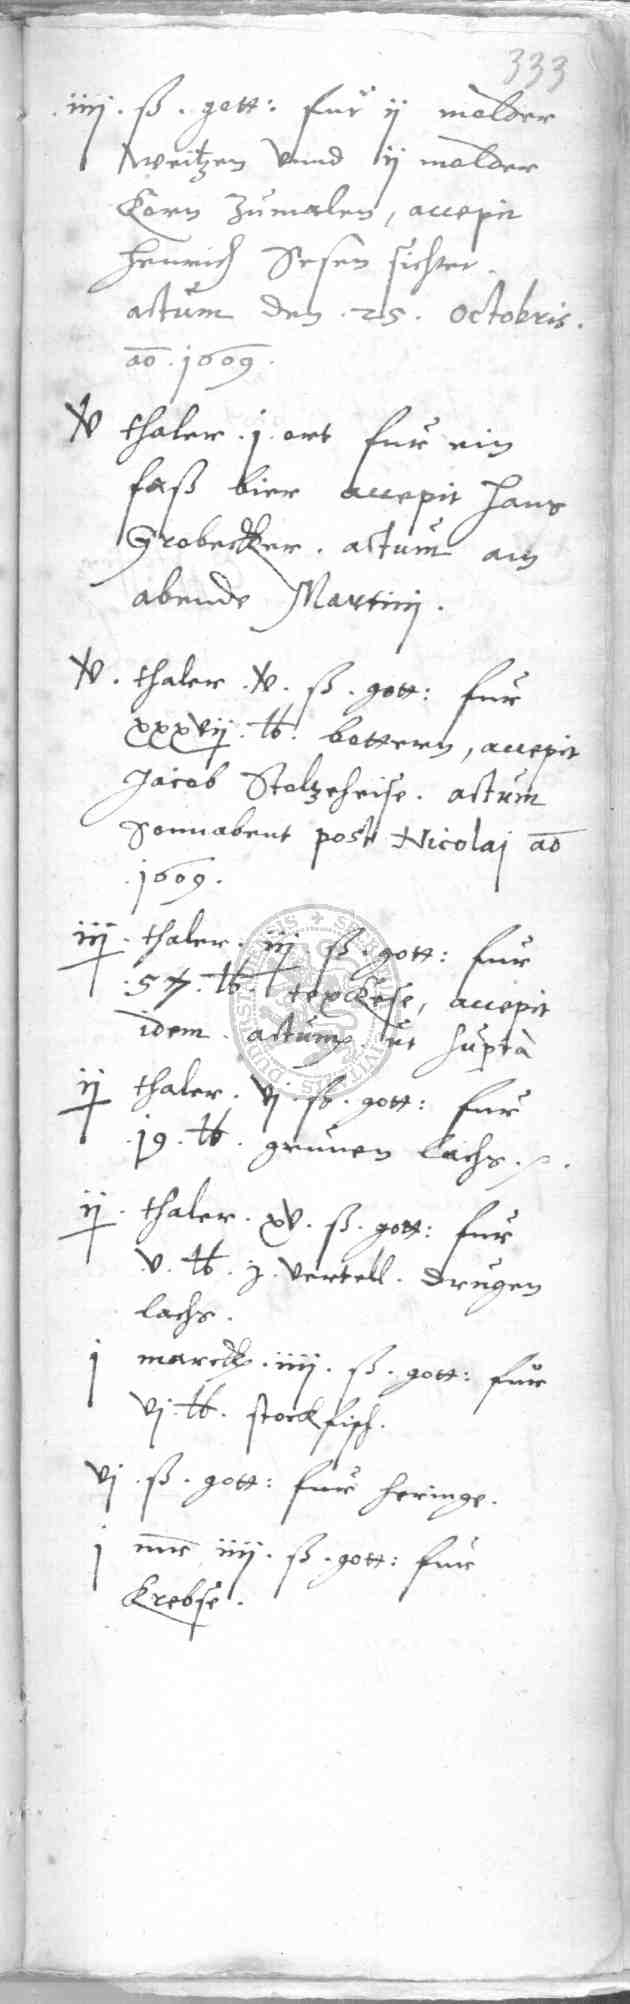 333
.iiij. ß. gott: fur ij molder
weitzen vnnd ij molder
Korn zumalen, accepit
Henrich Sesen sichter.
actum den .25. octobris.
ao .1609.
v thaler .j. ort fur ein
faß bier accepit Hans
Grobecker. actum am
abende Martinj.
v. thaler .v. ß. gott: fur
xxxvij. lb. bottern, accepit
Jacob Stoltzeheise. actum
Sonnabent post Nicolaj ao
.1609.
iij. thaler. iij ß. gott: fur
.57. lb. texkese, accepit
idem. actum ut supra
ij thaler. vj. ß. gott: fur
.19. lb. grunen lachs.
ij. thaler. xv. ß. gott: fur
.v. lb. j. vertell. drugen
lachs.
j marck. iiij. ß. gott: fur
vj. lb. stockfisch.
vj. ß. gott: fur heringe.
j mr iiij. ß. gott: fur
Krebse.